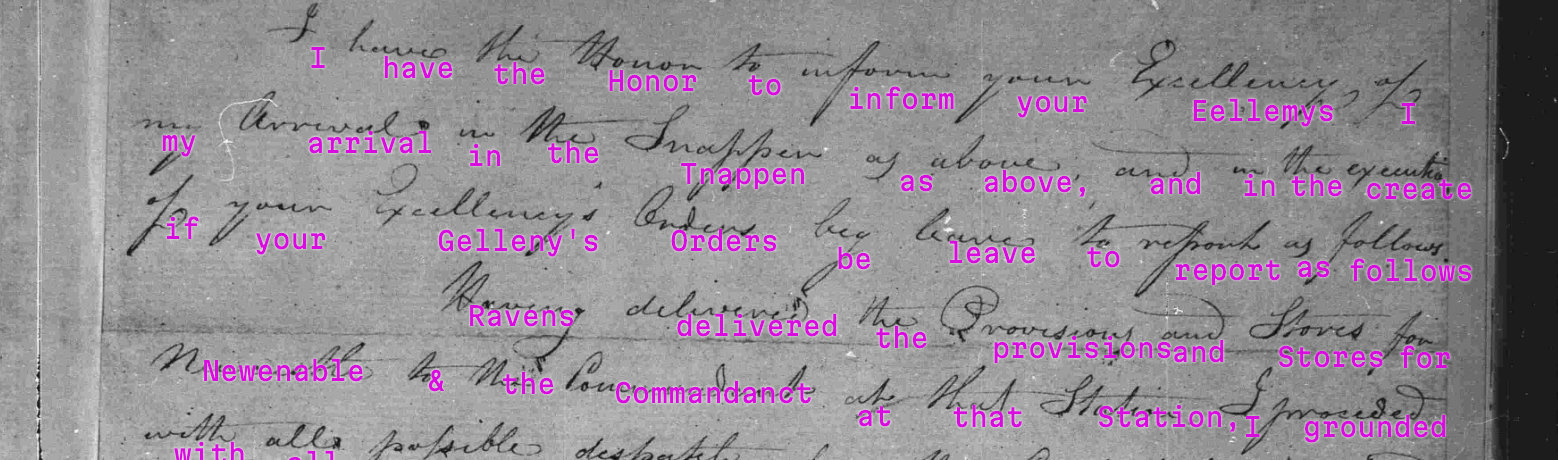 I have the Honor to inform your Excellency, of
I have the Honor to inform your Eellemys I
my Arrival in the Snappen as above, and in the executio
my arrival in the Tnappen as above, and in the create
of your Excellency's Orders beg leave to report as follows.
if your Gelleny's Orders be leave to report as follows
Having delivered the Provisions and Stores for
Ravens delivered the provisions and Stores for
to the Commandant at that Station, I proceeded
Newenable & the Commandanct at that Station, I grounded
with all possible despatch
with all